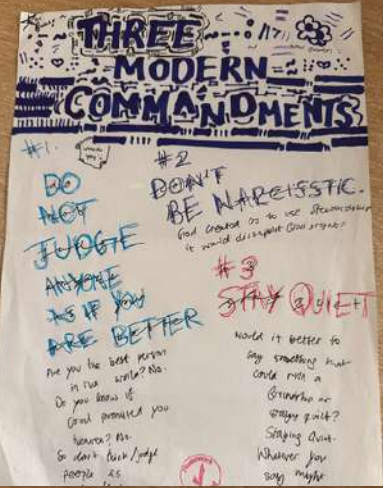 THREE
MODERN
COMMANDMENTS
#1.
DO
NOT
JUDGE
ANYONE
AS IF YOU
ARE BETTER
Are you the best person
in the world? No.
Do you know if
God promised you
heaven? No.
So don't think/judge
people as
#2
DON'T
BE NARCISSTIC.
God created us to use Stewardship
it would disappoint
#3
STAY QUIET
Would it better to
say something that
could ruin a
friendship or
staying quiet?
Staying Quiet.
Whatever you
say might